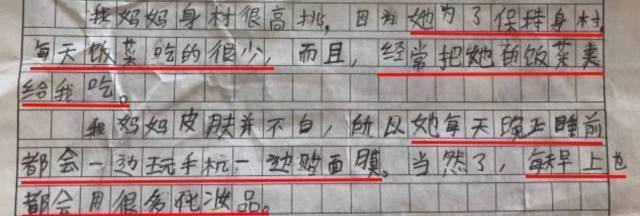 我妈妈身材很高挑，因为她为了保持身材，
每天饭菜吃的很少，而且，经常把她的饭菜夹
给我吃。
我妈妈皮肤并不白，所以她每天晚上睡前
都会一边玩手机一边贴面膜。当然了，每天早上也
都会用很多化妆品。